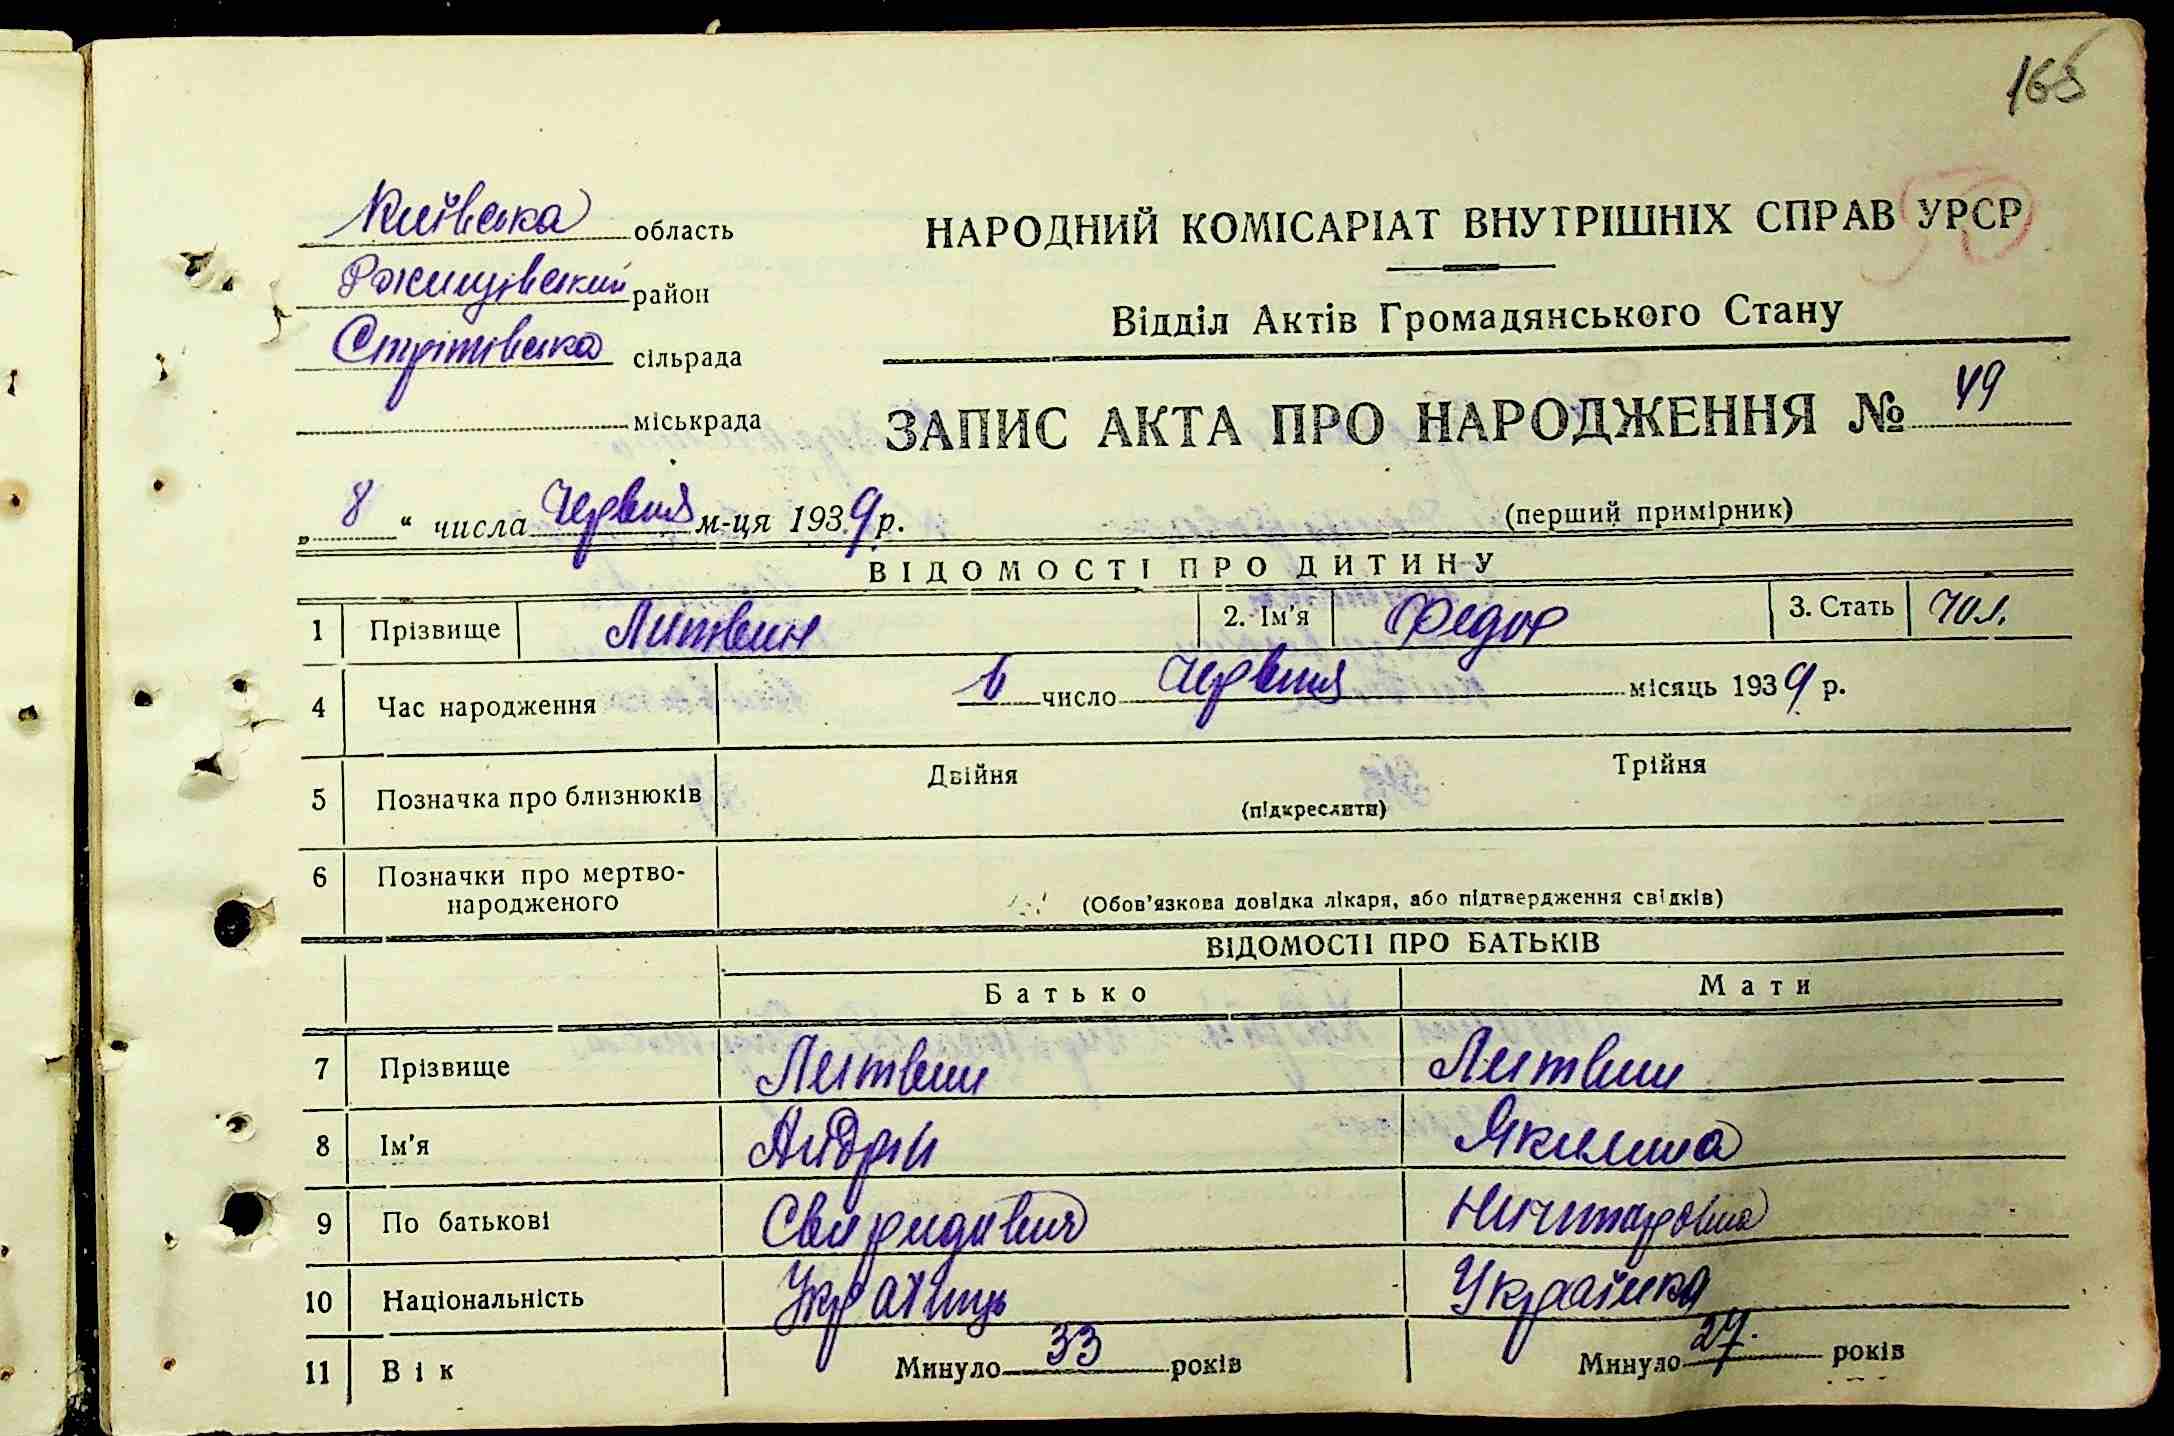 165
Київська область
Ржищівський район
Стрітівська сільрада
міськрада
НАРОДНИЙ КОМІСАРІАТ ВНУТРІШНІХ СПРАВ УРСР
Відділ Актів Громадянського Стану
ЗАПИС АКТА ПРО НАРОДЖЕННЯ № 49
„ 8 “ числа Червня м-ця 1939 р.
(перший примірник)
ВІДОМОСТІ ПРО ДИТИНУ
1 Прізвище Литвин 2. Ім'я Федор 3. Стать чол.
4 Час народження 6 число Червня місяць 1939 р.
5 Позначка про близнюків Двійня Трійня
(підкреслити)
6 Позначки про мертво-
народженого (Обов'язкова довідка лікаря, або підтвердження свідків)
ВІДОМОСТІ ПРО БАТЬКІВ
Батько Мати
7 Прізвище Литвин Литвин
8 Ім'я Андрій Якилина
9 По батькові Свиридович Ничипоровна
10 Національність Українець Українка
11 Вік Минуло 33 років Минуло 27. років